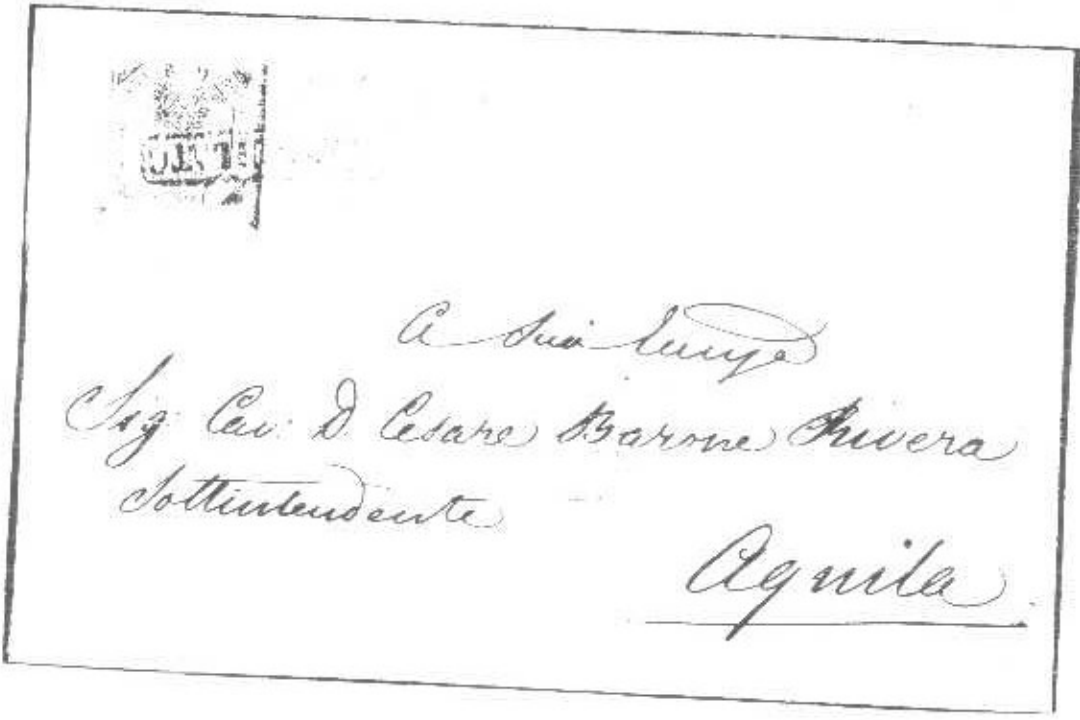 A Sua
Sig: Cav: D. Cesare Barone Rivera
Sottintendente
Aquila